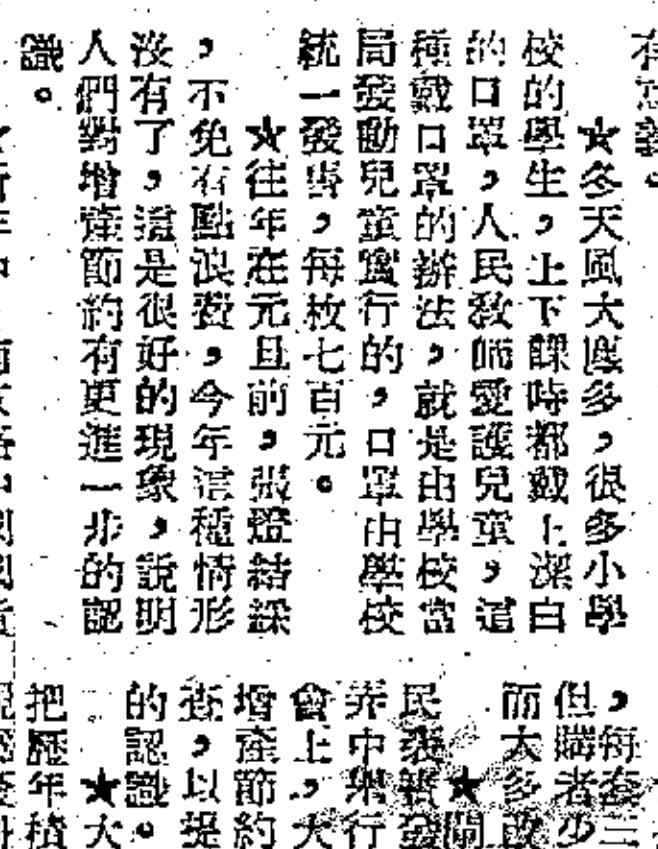 ★冬天風大塵多，很多小學
校的學生，上下課時都戴上潔白
的口罩，人民敎師愛護兒童，這
種戴口罩的辦法，就是由學校當
局發動兒童實行的，口罩由學校
統一發售，每枚七百元。
★往年在元旦前，張燈結綵
，不免有點浪費，今年這種情形
沒有了，這是很好的現象，說明
人們對增產節約有更進一步的認
識。
，每套三
但購者少
而大多改
★開
民發
弄中舉行
會上，大
增產節約
查，以提
的認識。
★大
把歷年積